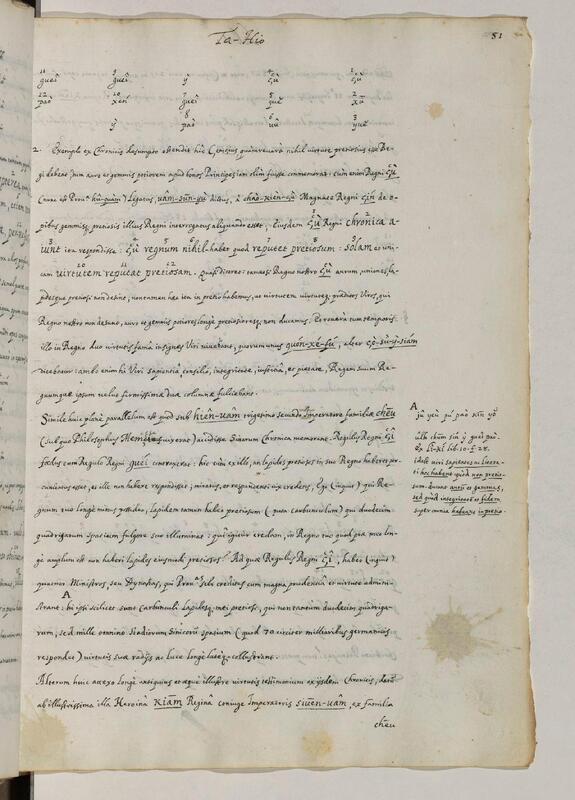 Ta-Hio
81
11 9 4 1
gueî gueî ỳ çù çù
12 10 7 5 2
paò xén gueî guě xū
8 6 3
ỳ paò uû yuě
2. Exemplo ex Chronicis desumpto ostendit hîc nihil virtute pretiosius esse Re-
gi debere, quam auro et gemmis potiorem apud bonos Principes jam olim fuisse commemorat: cum enim Regni çù
(nunc est Prov.ª hû-quàm) Legatus, uâm-sūn-yû dictus, à chào-kièn-çù Magnate Regni çín de o-
pibus gemmisq. pretiosis illius Regni interrogatus aliquando esset; Ejusdem çù Regni chronica a-
iunt ita respondisse: çù regnum nihil habet quod reputet pretiosum: solam et uni-
cam virtutem reputat pretiosam. Quasi diceret: tametsi Regno nostro çù aurum, uniones, la-
pidesque pretiosi non desint, non tamen haec ita in pretio habemus, ac virtutem virtuteq. praeditos Viros, qui
Regno nostro non desunt, auro et gemmis potiores longè pretiosioresq. non ducamus. Et revera tum temporis
illo in Regno duo virtutis famâ insignes Viri vivebant, quorum unus quōn-xé-fú, alter
dicebatur: ambo enim hi Viri sapientiâ consilio, integritate, justitiâ, et pietate, Regem suum Re-
gnumque ipsum velut firmissimae duae columnae fulciebant.
Simile huic planè parallelum est quod sub hièn-uâm trigesimo secundo Imperatore familiae chēu
(sub quo Philosophus Memcius fuit vixerat) accidisse Sinarum Chronica memorant. Regulus Regni çî
foedus cum Regulo Regni guéi contraxerat: hic cùm ex illo, an lapides pretiosos in suo Regno haberet per-
cunctatus esset, et ille non habere respondisset; miratus, et respondenti vix credens, Ego (inquit) qui Re-
gnum tuo longè minus possideo, lapidem tamen habeo pretiosum (puta carbunculum) qui duodecim
quadrigarum spatium fulgore suo illuminet: quis igitur credam, in Regno tuo quod prae meo lon-
gè amplum est non haberi lapides ejusmodi pretiosos? Ad quae Regulus Regni çî, habeo (inquit)
quatuor Ministros, seu Dynastas, qui Prov.as sibi creditas cum magna prudentia et virtute admini-
A
strant: hi ipsi scilicet sunt Carbunculi Lapidesq. mei pretiosi, qui non tantum duodecim quadriga-
rum, sed mille omnino Stadiorum Sinicorum spatium (quod 70 circiter milliaribus germanicis
respondet) virtutis suae radijs ac luce longè lateq. collustrant.
Alterum huic attexo longè antiquius et aequè illustre virtutis testimonium ex ijsdem Chronicis, datum
ab illustrissima illa Haroina Kiām Reginâ conjuge Imperatoris siuēn-uâm, ex familia
chēu
A
jû yeù pú paò kīn yǒ
ulh chūm sín ỳ guêi paò.
ex Lì-Kí lib. 10. f. 28.
idest: viri sapientes ac litera-
ti hoc habent quòd non pretio-
sum ducant aurum et gemmas,
sed quòd integritatem et fidem
supra omnia habeant in pretio.